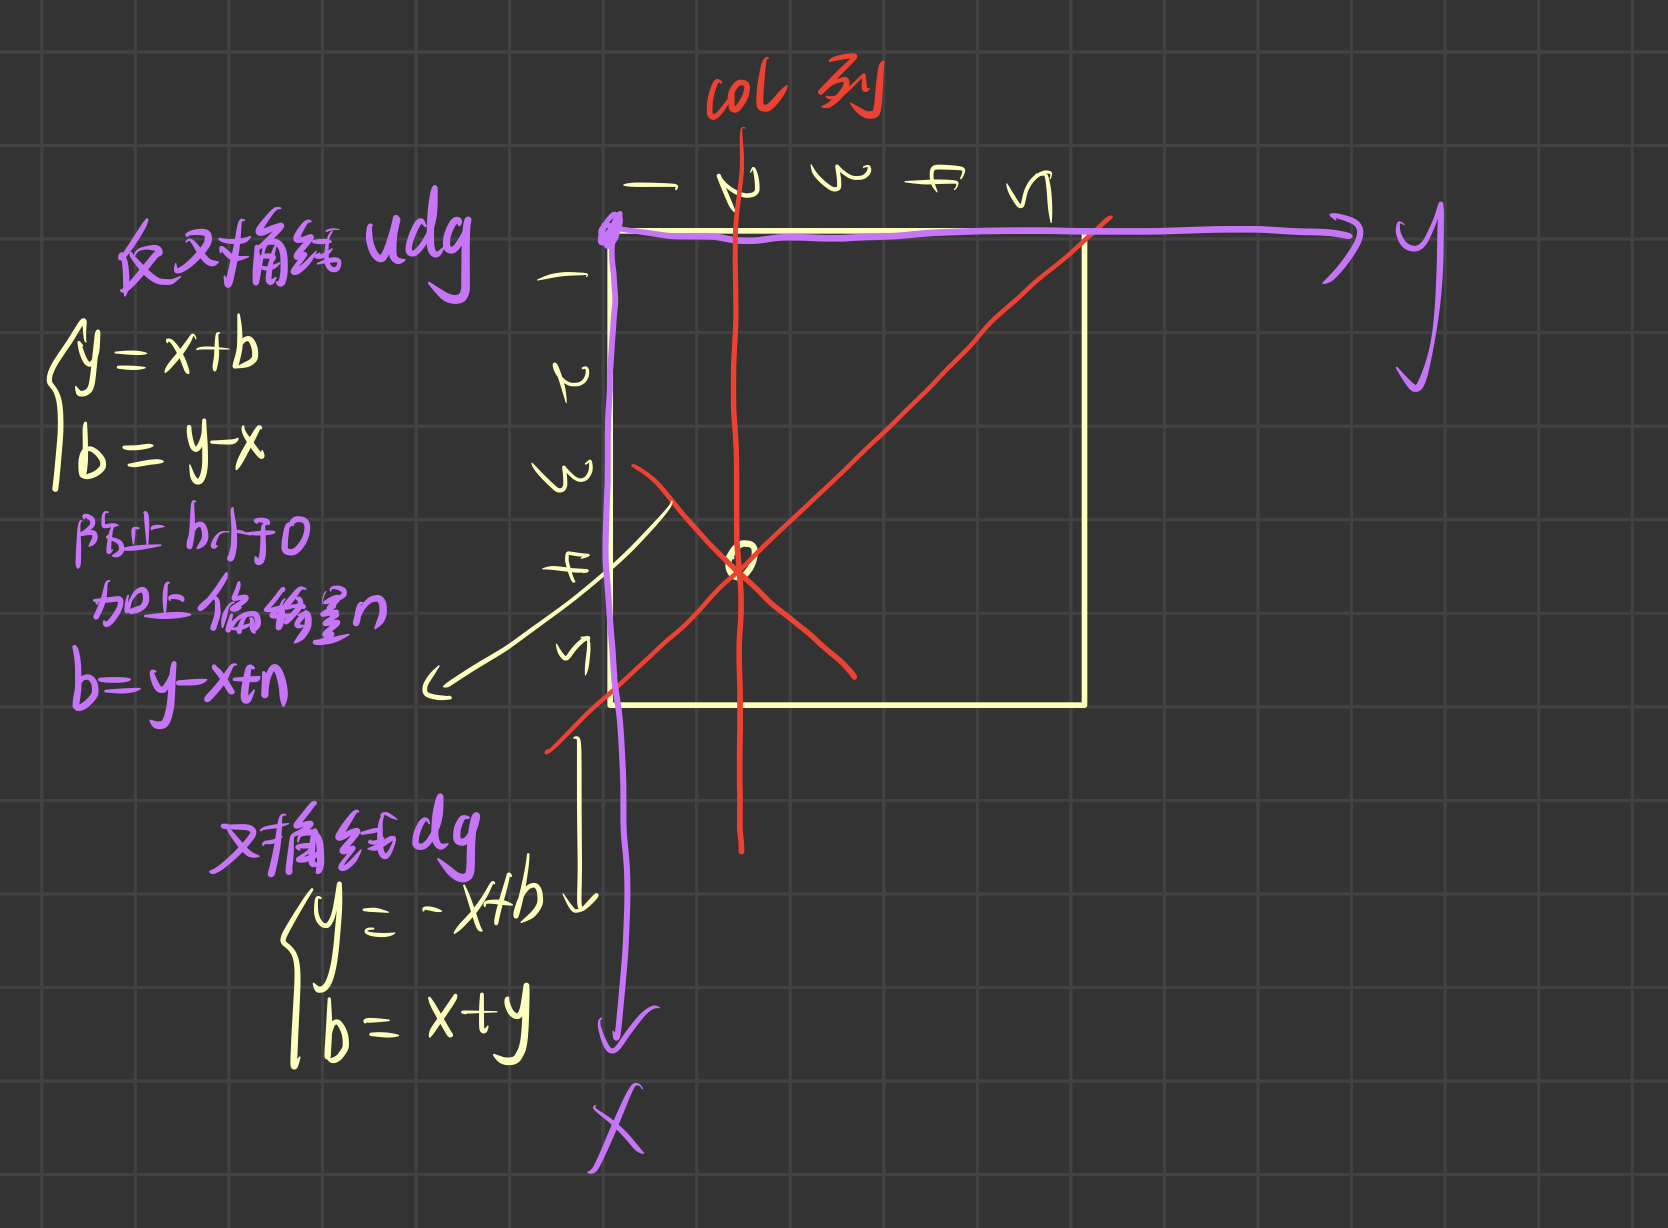 col 列
1 2 3 4 5
y
反对角线 udg
y = x+b
b = y-x
防止 b小于0
加上偏移量n
b=y-x+n
1
2
3
4
5
对角线 dg
y = -x+b
b = x+y
x